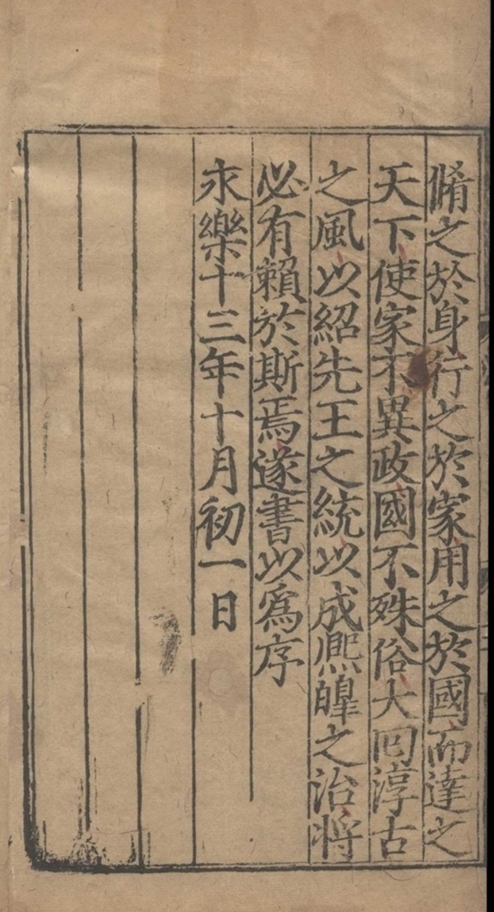 脩之於身行之於家用之於國而達之
天下使家不異政國不殊俗大回淳古
之風以紹先王之統以成熈皥之治将
必有賴於斯焉遂書以爲序
永樂十三年十月初一日